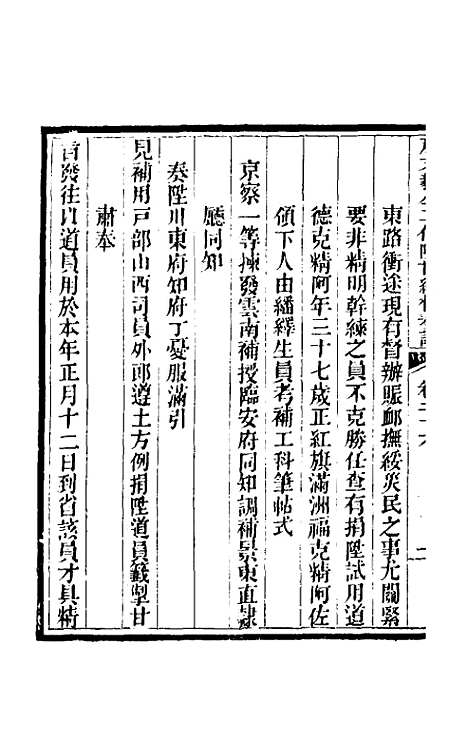 東路衝途現有督辦賑䘏撫綏災民之事尤關緊
要非精明幹練之員不克勝任查有捐陞試用道
德克精阿年三十七歲正紅旗滿洲福克精阿佐
領下人由繙繹生員考補工科筆帖式
京察一等揀發雲南補授臨安府同知調補景東直隸
廳同知
奏陞川東府知府丁憂服滿引
見補用戸部山西司員外郎遵土方例捐陞道員籖掣甘
肅奉
旨發往以道員用於本年正月十二日到省該員才具精